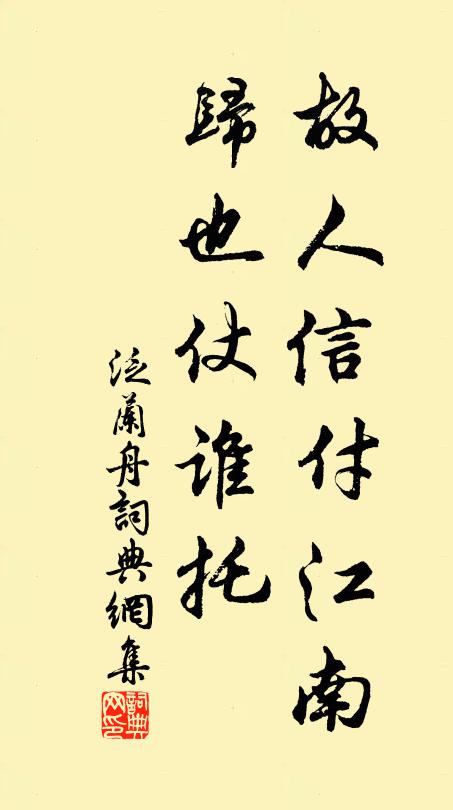 故人信付江南
歸也仗誰托
泛蘭舟詞典網集
詞典網印